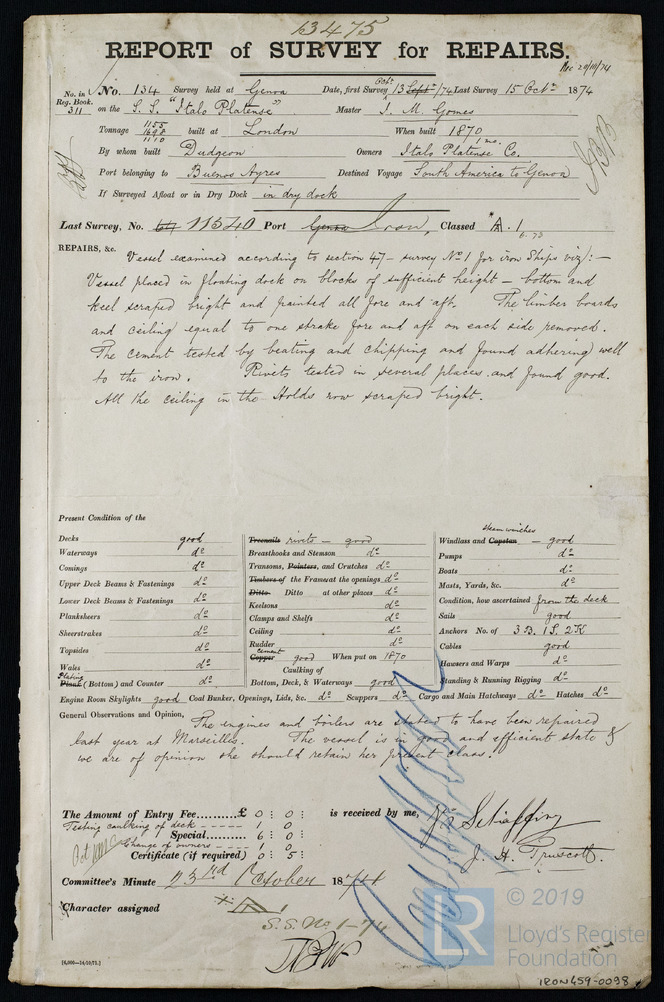 13475
REPORT of SURVEY for REPAIRS.
Rec 20/10/74
No. in Reg. Book. 311
No. 134 Survey held at Genoa Date, first Survey 13 Sept Oct /74 Last Survey 15 Oct 1874
on the S. S. "Italo Platense" Master J. M. Gomes
Tonnage 1155 1698 1110 built at London When built 1870 1 mo.
By whom built Dudgeon Owners Italo Platense Co.
Port belonging to Buenos Ayres Destined Voyage South America to Genoa
If Surveyed Afloat or in Dry Dock in dry dock
Last Survey, No. 11540 Port Genoa Iron, Classed A. 1
REPAIRS, &c. Vessel examined according to section 47 - survey No 1 for iron Ships viz):-
Vessel placed in floating dock on blocks of sufficient height - bottom and
keel scraped bright and painted all fore and aft. The limber boards
and ceiling equal to one strake fore and aft on each side removed.
The cement tested by beating and chipping and found adhering well
to the iron. Rivets tested in several places and found good.
All the ceiling in the Holds now scraped bright.
Present Condition of the
Decks good
Waterways do
Comings do
Upper Deck Beams & Fastenings do
Lower Deck Beams & Fastenings do
Planksheers do
Sheerstrakes do
Topsides do
Wales do
Plating Plank (Bottom) and Counter do
Treenails rivets - good
Breasthooks and Stemson do
Transoms, Pointers, and Crutches do
Timbers of the Frame at the openings do
Ditto Ditto at other places do
Keelsons do
Clamps and Shelfs do
Ceiling do
Rudder do
Copper cement good When put on 1870
Caulking of
Bottom, Deck, & Waterways good
steam winches
Windlass and Capstan - good
Pumps do
Boats do
Masts, Yards, &c. do
Condition, how ascertained from the deck
Sails good
Anchors No. of 3 B. 1 S. 2 K
Cables good
Hawsers and Warps do
Standing & Running Rigging do
Engine Room Skylights good Coal Bunker, Openings, Lids, &c. do Scuppers do Cargo and Main Hatchways do Hatches do
General Observations and Opinion, The engines and boilers are stated to have been repaired
last year at Marseilles. The vessel is in good and efficient state &
we are of opinion she should retain her present class.
The Amount of Entry Fee..........£ 0 : 0 : is received by me,
Testing caulking of deck - - - 1 0
Special.......... 6 : 0 :
Change of owners - - - 1 0
Certificate (if required) 0 : 5 :
J. A. Pruscott.
Committee's Minute 23rd October 1874
Character assigned A 1
S.S. No 1-74
[6,000—14/10/72.]
© 2019
LR
Lloyd's Register
Foundation
IRON459-0098